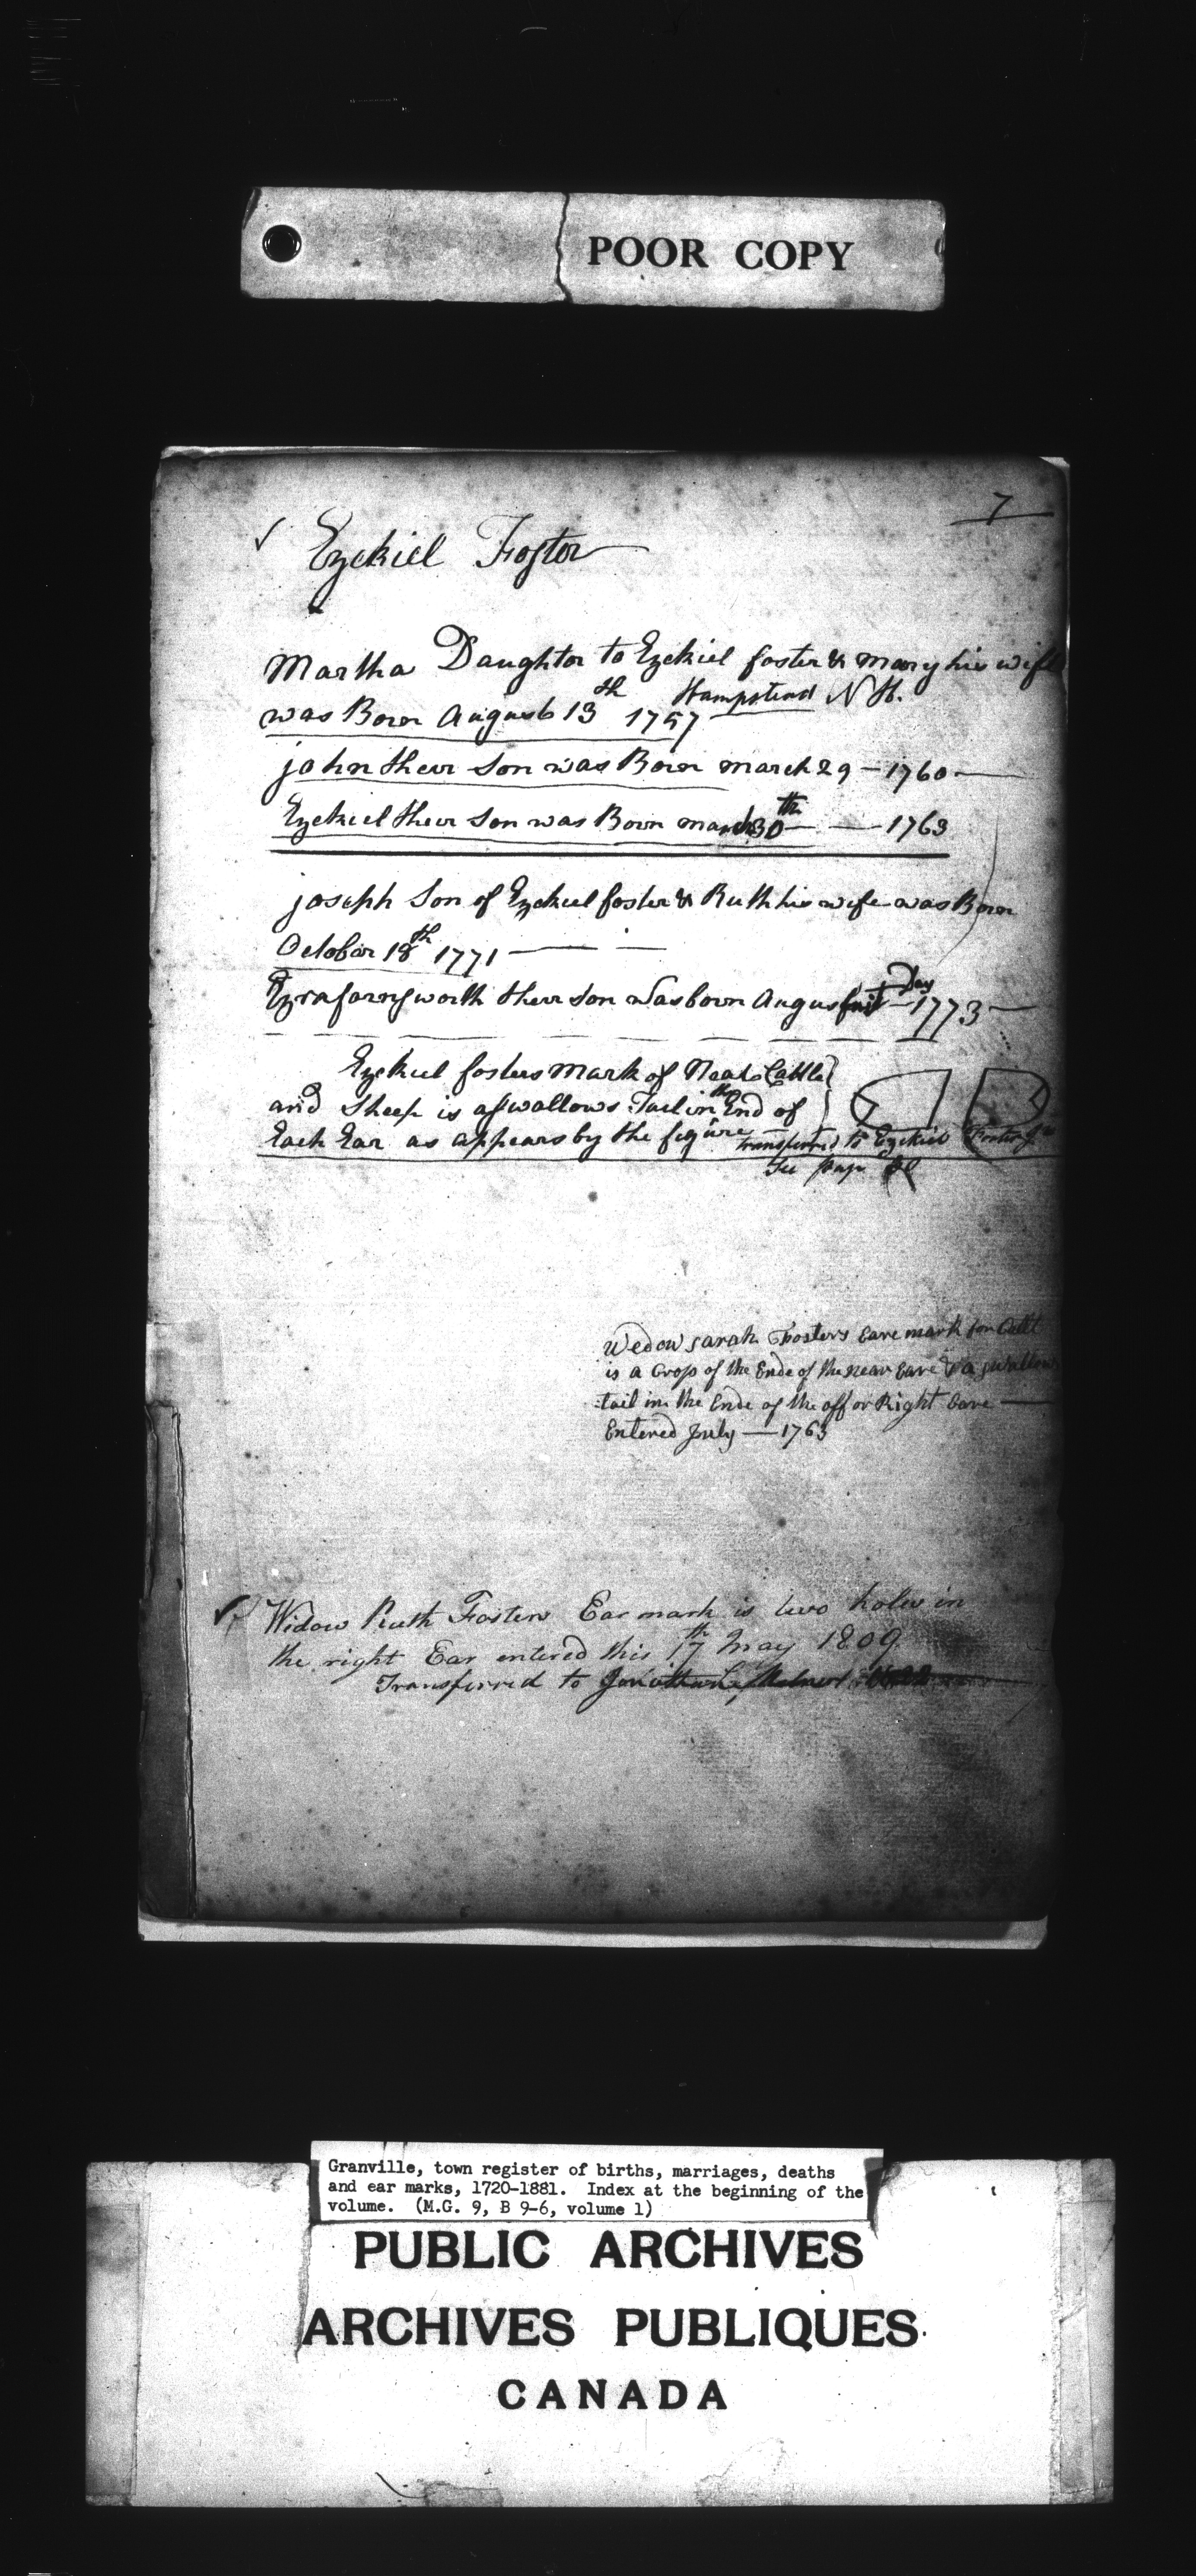 POOR COPY
7
Ezekiel Foster
Martha Daughter to Ezekiel foster & mary his wife
Hampstead N H.
was Born August 13th 1757
john their Son was Born march 29 - 1760
Ezekiel their Son was Born march 30th - 1763
joseph Son of Ezekiel foster & Ruth his wife was Born
October 18th 1771
Ezra farnsworth their son was born August first Day - 1773
Ezekiel fosters mark of Neat Cattle
and Sheep is a swallows Tail in the End of
Each Ear as appears by the figure transferred to Ezekiel Foster
See page
Wedow sarah Fosters Eare mark for Catt
is a Crop of the Ende of the near Eare & a swallows
tail in the Ende of the off or Right Eare
Entered July - 1763
Widow Ruth Fosters Ear mark is two holes in
the right Ear entered this 17th May 1809
Transferred to
Granville, town register of births, marriages, deaths
and ear marks, 1720-1881. Index at the beginning of the
volume. (M.G. 9, B 9-6, volume 1)
PUBLIC ARCHIVES
ARCHIVES PUBLIQUES
CANADA